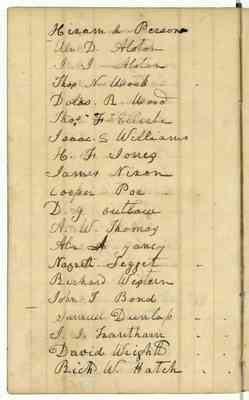 Hiram L Person
Wm D. Alston
J. J. Alston
Thos N. Wood
Dolas. R Wood
Thos F
Isaac S Williams
H. F Jones
James Nixon
Cooper Poe
D. G outlaw
A. W. Thomas
Yancy
Nazreth Legget
Burkard Western
John T Bond
Samuel Dunlop
J. J. Trautham
David Wright
Rich W. Hatch